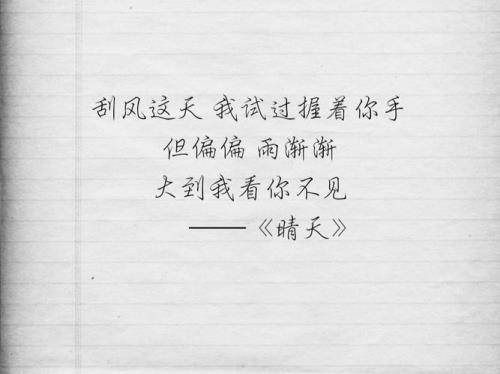 刮风这天 我试过握着你手
但偏偏 雨渐渐
大到我看你不见
——《晴天》